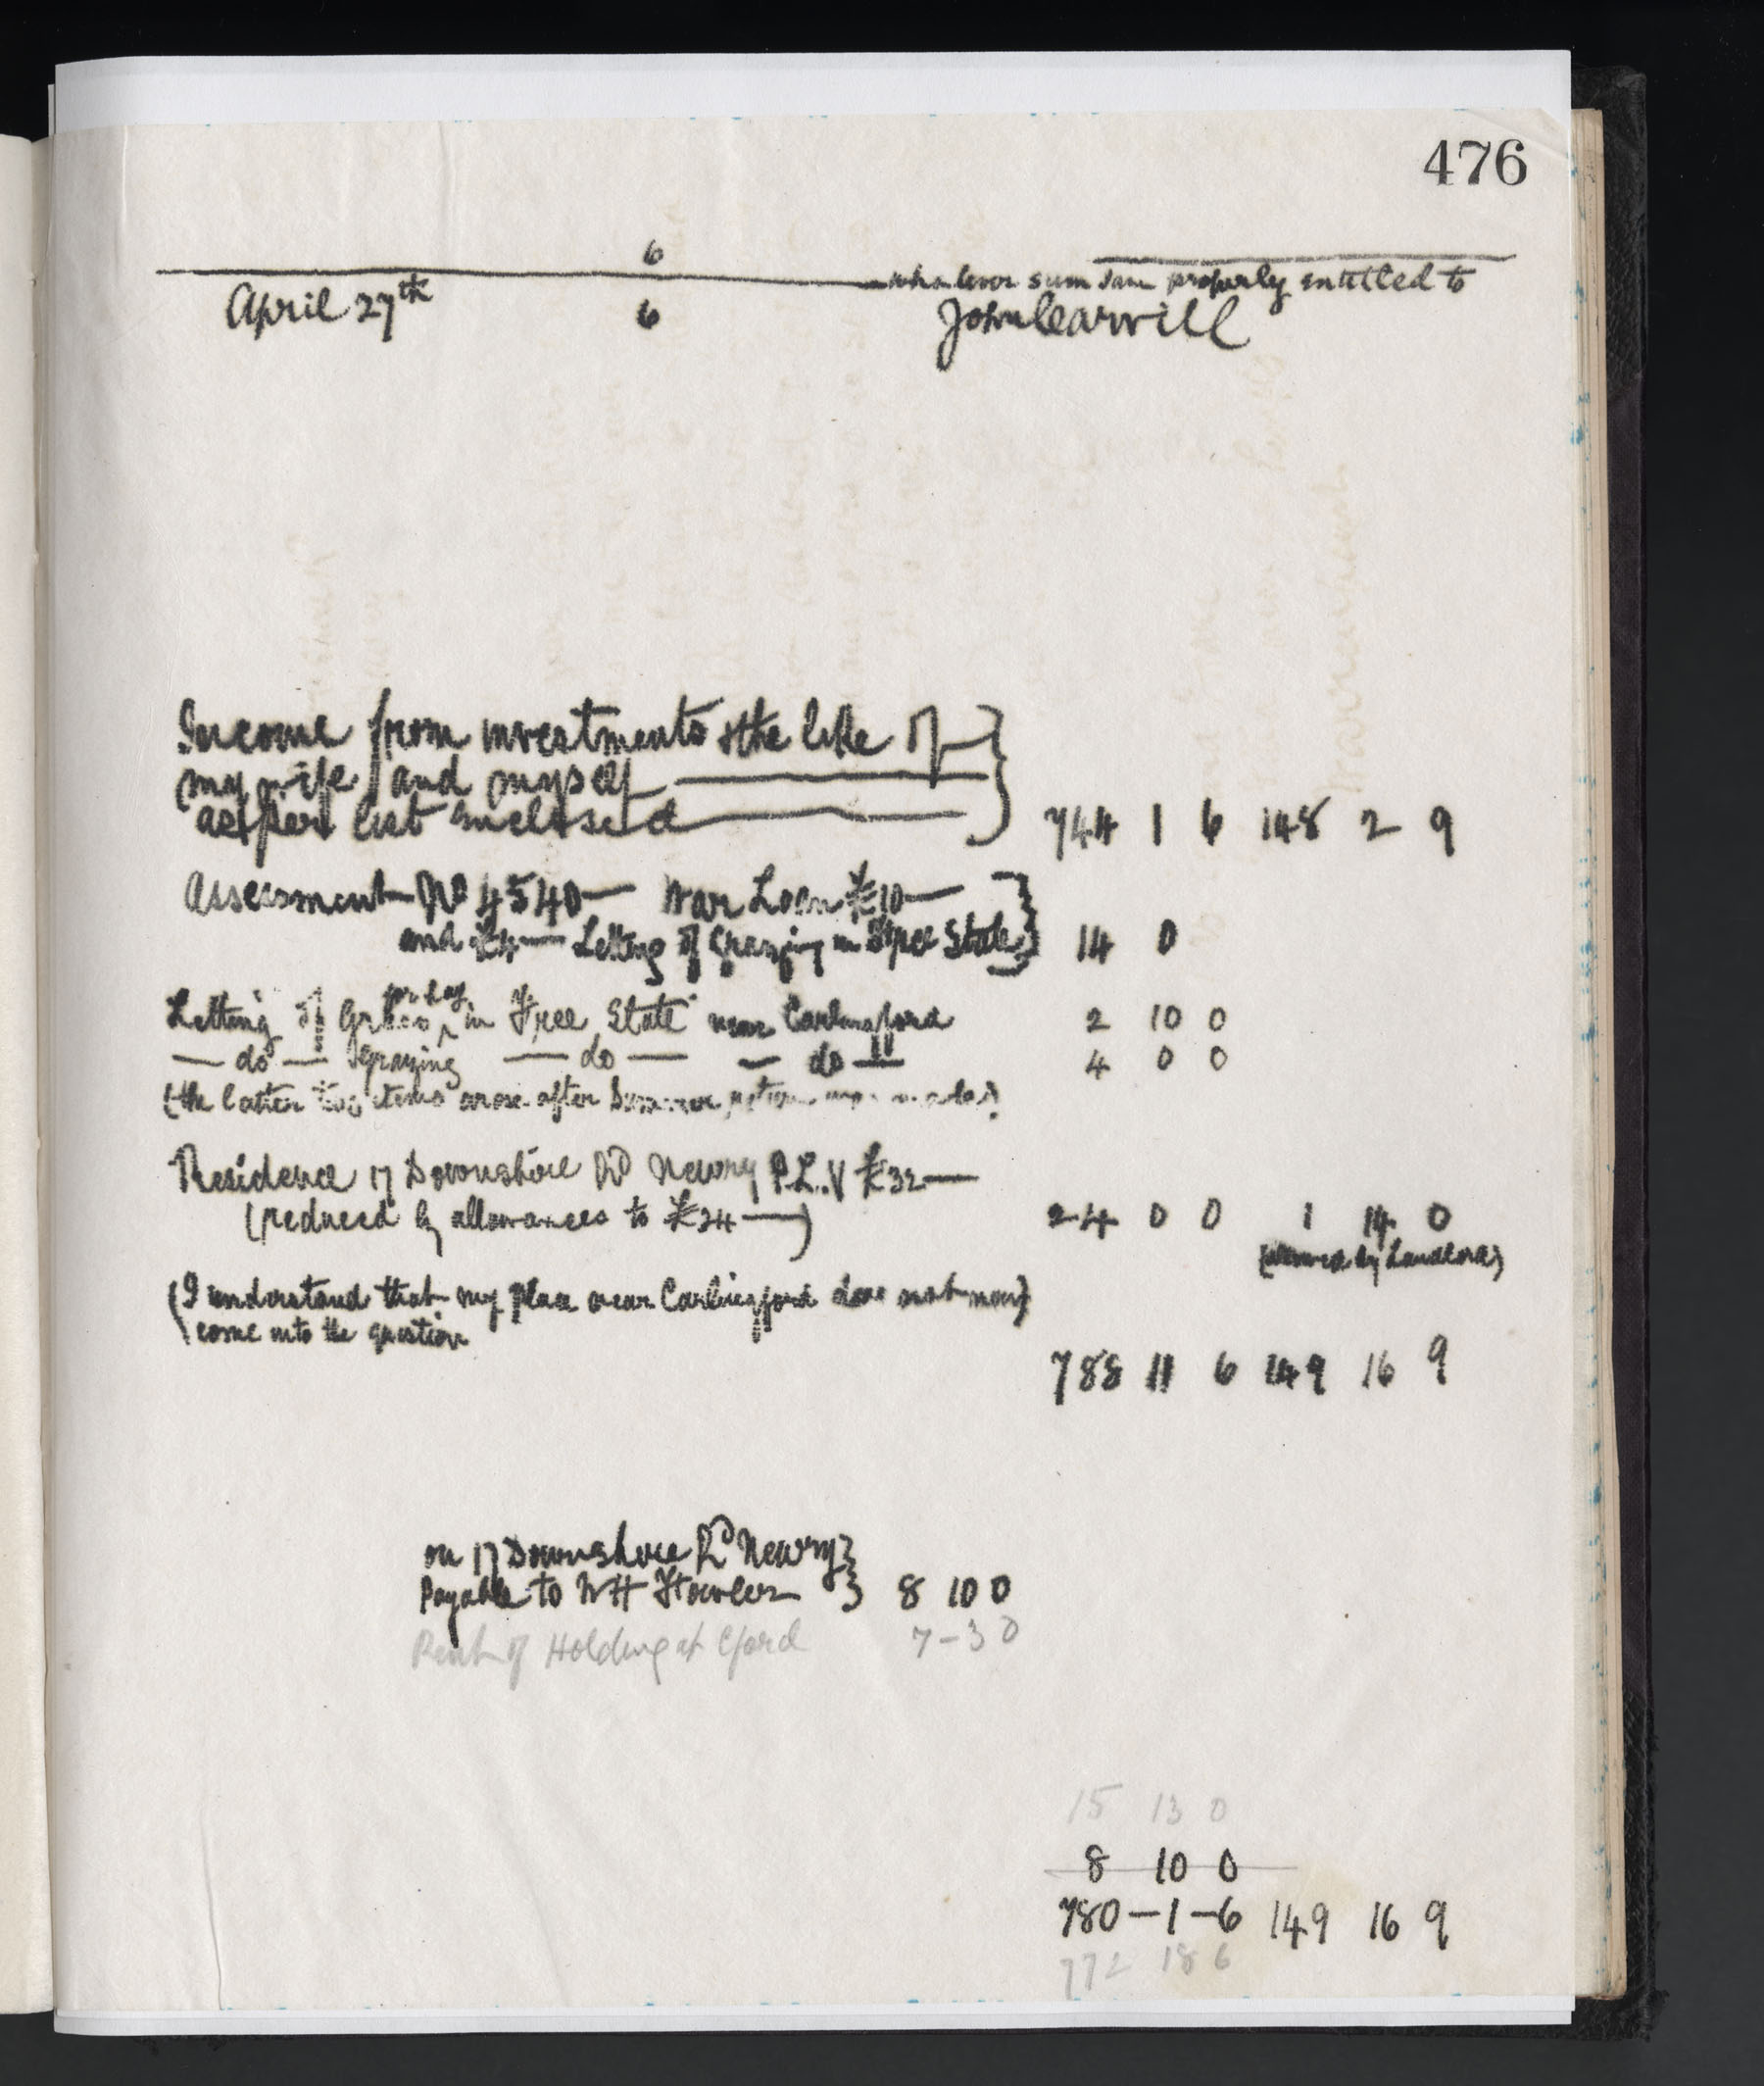 476
6
whatever sum I am properly entitled to
April 27th 6 John Carvill
Income from investments & the like of
my wife and myself
as per list enclosed 744 1 6 148 2 9
Assessment No 4540 — War Loan £10 —
and £4 — Letting of Grazing in Free State 14 0
Letting of Grass for hay in Free State near Carlingford 2 10 0
— do — Grazing — do — — do — 4 0 0
(the latter two items arose after Summer return was made)
Residence 17 Downshire Rd Newry P.L.V £32 —
(reduced by allowances to £24 —) 24 0 0 1 14 0
by Landlord)
(I understand that my place near Carlingford does not now)
come into the question
788 11 6 149 16 9
on 17 Downshire Rd Newry
Payable to W H 8 10 0
Rent of Holding at Cford 7-3 0
15 13 0
8 10 0
780-1-6 149 16 9
772 18 6